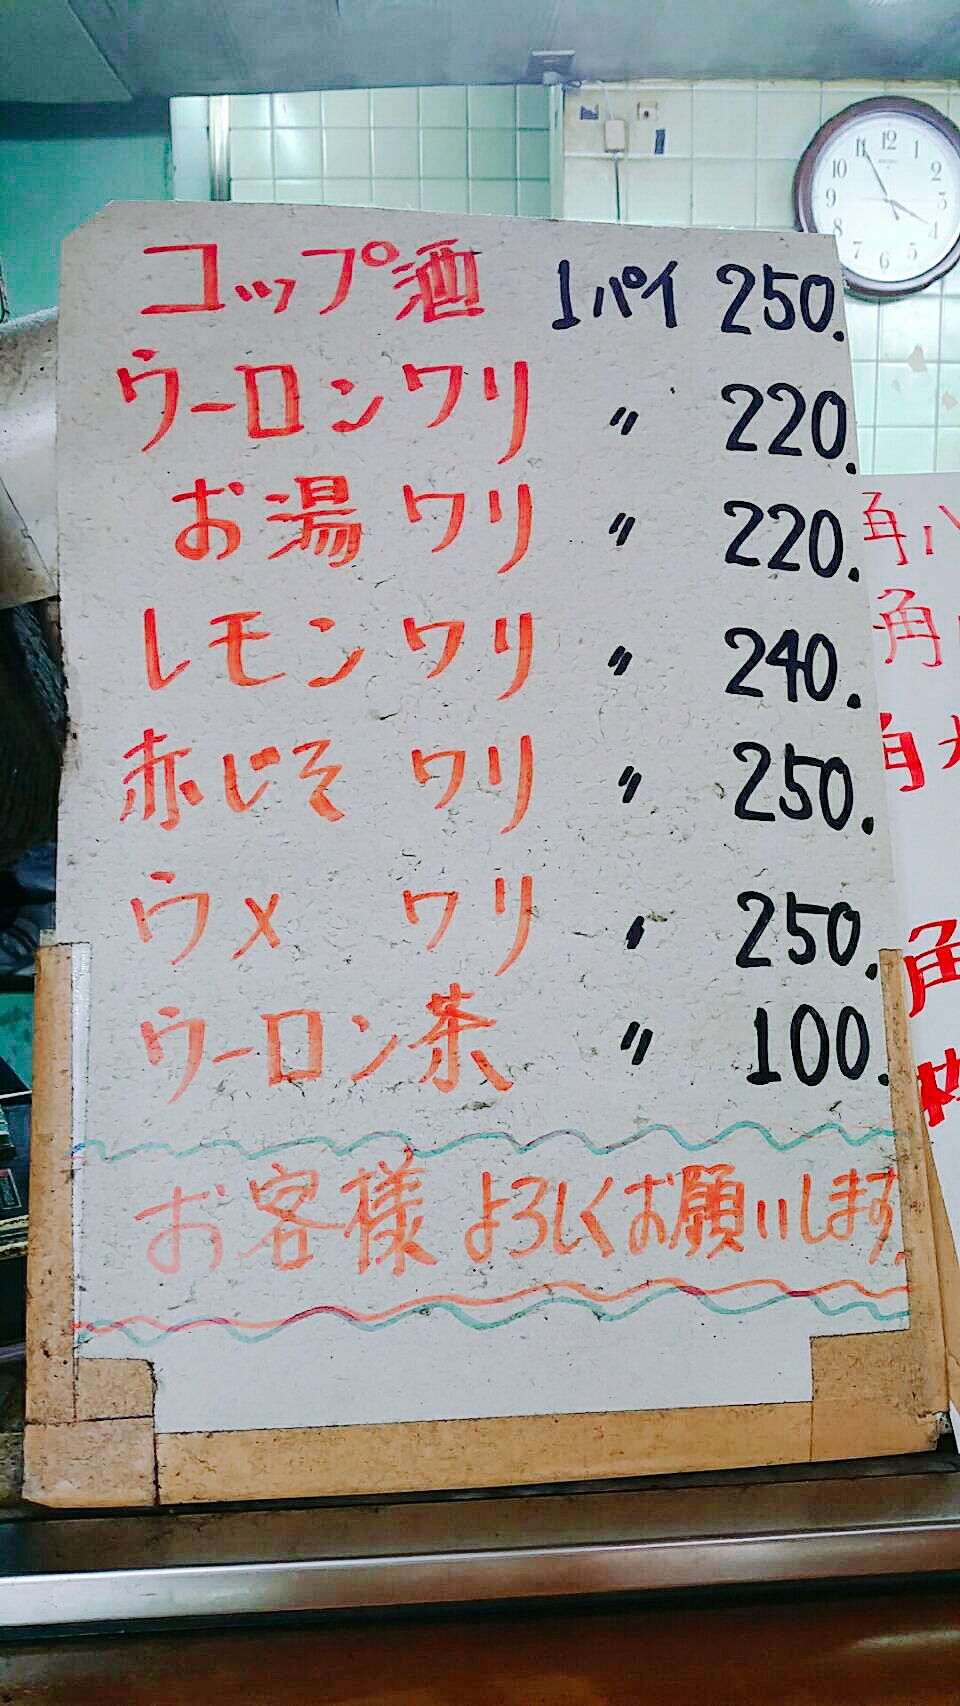 コップ酒 1パイ 250.
ウーロンワリ 〃 220.
お湯ワリ 〃 220.
レモンワリ 〃 240.
赤じそワリ 〃 250.
ウメワリ 〃 250.
ウーロン茶 〃 100.
お客様よろしくお願いします.
角ハ
角
角
角
12
1
2
3
4
5
6
7
8
9
10
11